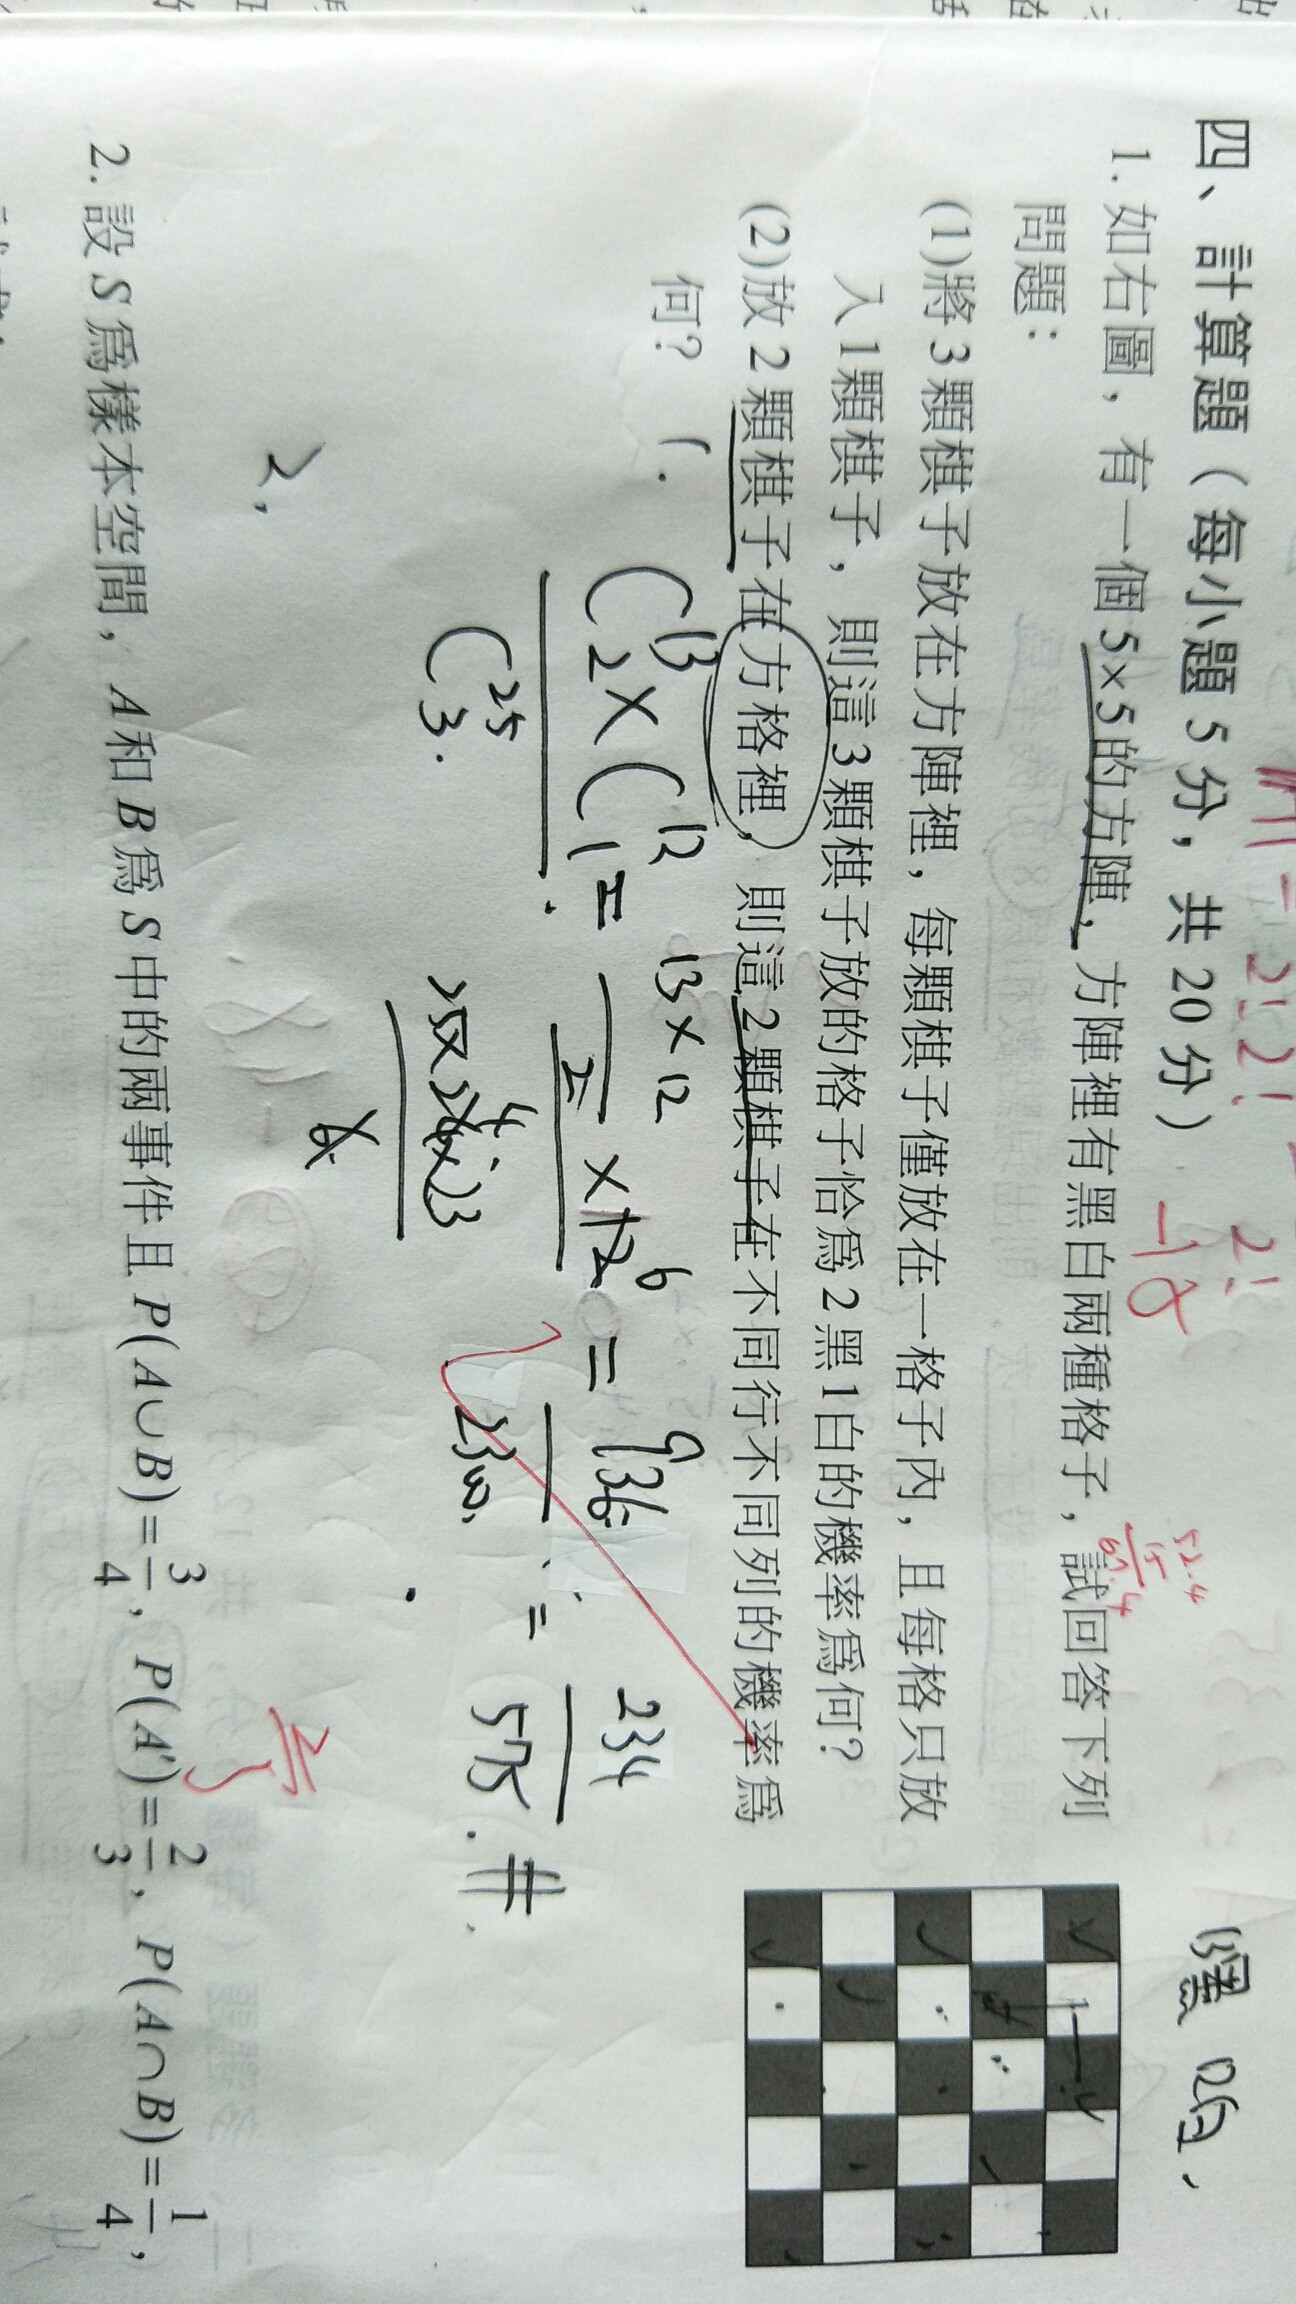 四、計算題（每小題 5 分，共 20 分）
-18
52.4
15
67.4
13黑 12白,
1. 如右圖，有一個 5×5 的方陣，方陣裡有黑白兩種格子，試回答下列
問題：
(1)將 3 顆棋子放在方陣裡，每顆棋子僅放在一格子內，且每格只放
入 1 顆棋子，則這 3 顆棋子放的格子恰為 2 黑 1 白的機率為何？
(2)放 2 顆棋子在方格裡，則這 2 顆棋子在不同行不同列的機率為
何？
1. C 13 2 × C 12 1 / C 25 3 = 13×12 / 2 × 12 6 / 25×24 4×23 / 6 = 936 / 2300 = 234 / 575 #
2,
2/3
2. 設 S 為樣本空間，A 和 B 為 S 中的兩事件且 P(A∪B)=3/4，P(A')=2/3，P(A∩B)=1/4，